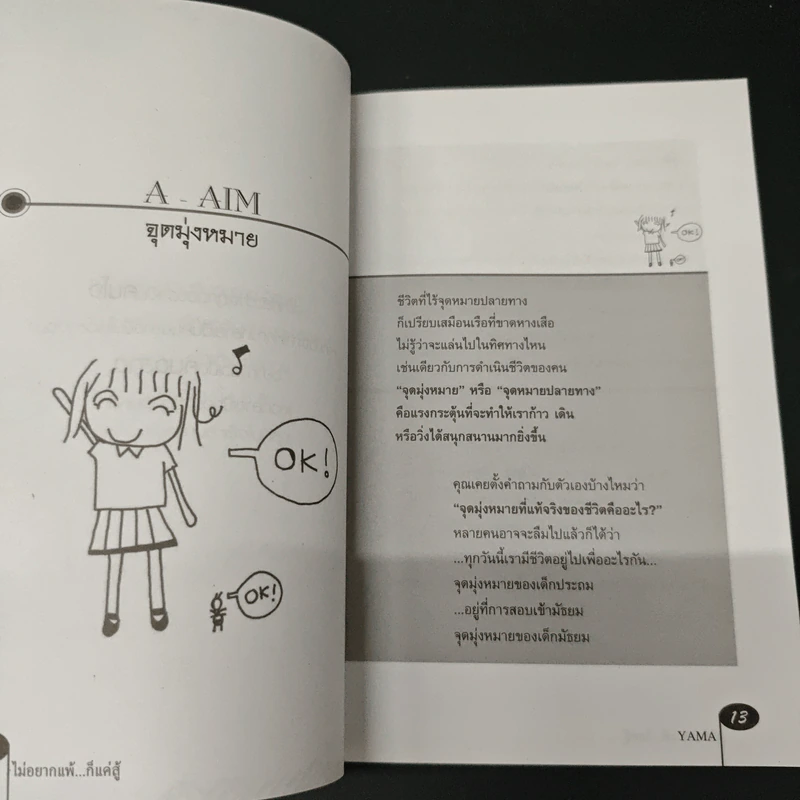 A - AIM
จุดมุ่งหมาย
OK!
OK!
ไม่อยากแพ้...ก็แค่สู้
OK!
ชีวิตที่ไร้จุดหมายปลายทาง
ก็เปรียบเสมือนเรือที่ขาดหางเสือ
ไม่รู้ว่าจะแล่นไปในทิศทางไหน
เช่นเดียวกับการดำเนินชีวิตของคน
“จุดมุ่งหมาย” หรือ “จุดหมายปลายทาง”
คือแรงกระตุ้นที่จะทำให้เราก้าว เดิน
หรือวิ่งได้สนุกสนานมากยิ่งขึ้น
คุณเคยตั้งคำถามกับตัวเองบ้างไหมว่า
“จุดมุ่งหมายที่แท้จริงของชีวิตคืออะไร?”
หลายคนอาจจะลืมไปแล้วก็ได้ว่า
...ทุกวันนี้เรามีชีวิตอยู่ไปเพื่ออะไรกัน...
จุดมุ่งหมายของเด็กประถม
...อยู่ที่การสอบเข้ามัธยม
จุดมุ่งหมายของเด็กมัธยม
YAMA 13